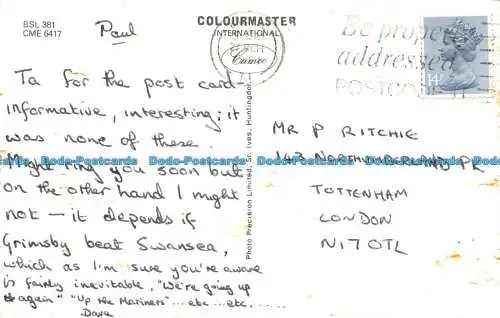 BSL 381
CME 6417
Paul
Ta for the post card-
informative, interesting; it
was none of these.
Might ring you soon but
on the other hand I might
not - it depends if
Grimsby beat Swansea,
which as I'm sure you're aware
is fairly inevitable, "We're going up
again" "Up the Mariners" ...etc ...etc.....
Dave
COLOURMASTER
INTERNATIONAL
Photo Precision Limited, St. Ives, Huntingdon
Be properly
addressed
POSTCODE IT
14
MR P RITCHIE
143 NORTHUMBERLAND PK
TOTTENHAM
LONDON
N17 0TL
Dodo-Postcards Dodo-Postcards Dodo-Postcards Dodo-Postcards Dodo-Postcards